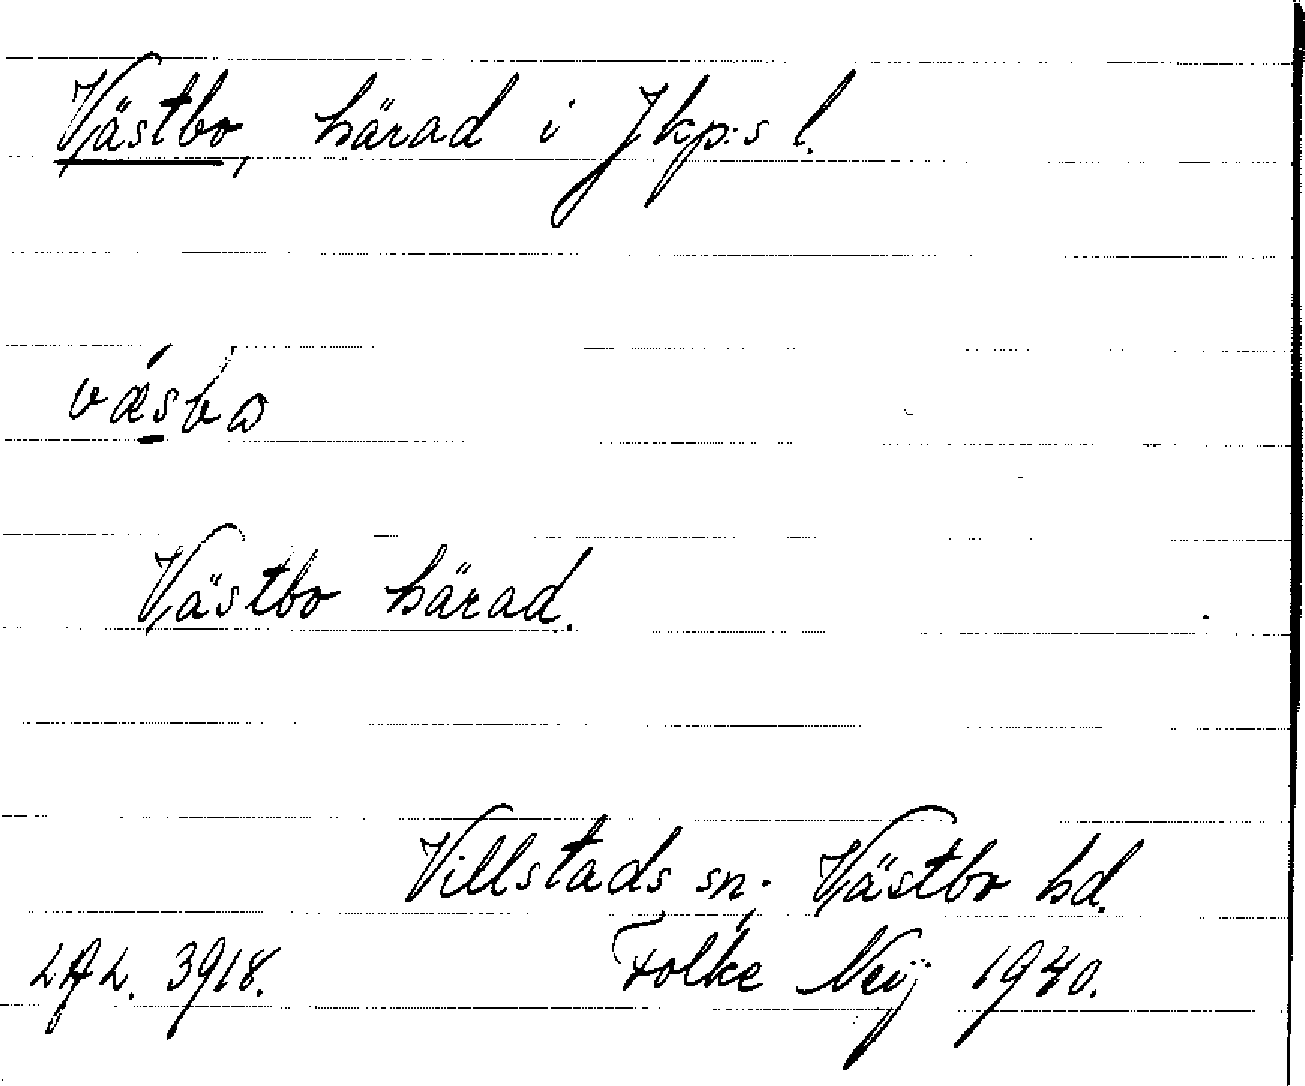 Västbo, härad i Jkp:s l.
Västbo härad.
Villstads sn. Västbo hd.
LAL. 3918. Folke Neij 1940.